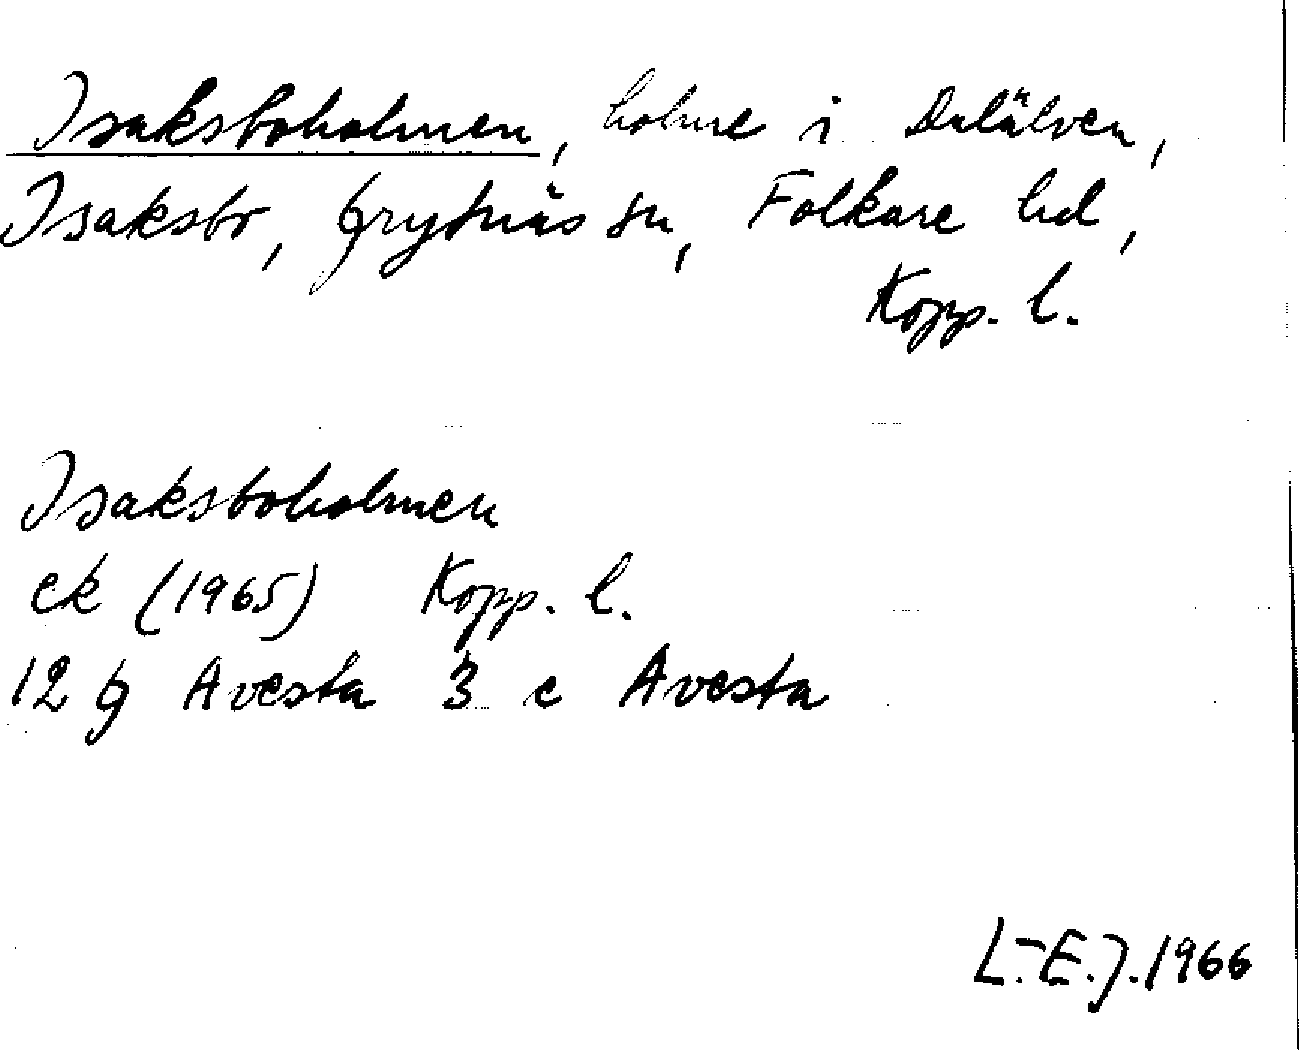 Isaksboholmen, holme i Dalälven,
Isaksbo, Grytnäs sn, Folkare hd,
Kopp. l.
Isaksboholmen
ek (1965) Kopp. l.
12 G Avesta 3 c Avesta
L.-E.J. 1966